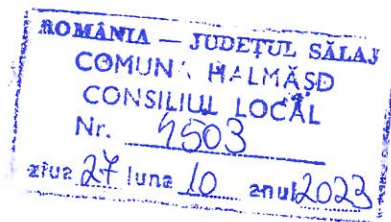 ROMÂNIA — JUDEŢUL SĂLAJ
COMUNA HALMĂŞD
CONSILIUL LOCAL
Nr. 4503
ziua 27 luna 10 anul 2023